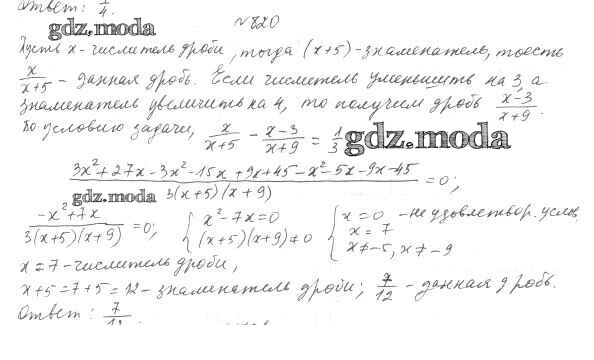 Ответ: 1/4.
gdz.moda
№820
Пусть x - числитель дроби, тогда (x+5) - знаменатель, то есть
x/(x+5) - данная дробь. Если числитель уменьшить на 3, а
знаменатель увеличить на 4, то получим дробь (x-3)/(x+9).
По условию задачи, x/(x+5) - (x-3)/(x+9) = 1/3
gdz.moda
(3x²+27x-3x²-15x+9x+45-x²-5x-9x-45)/(3(x+5)(x+9)) = 0;
gdz.moda
(-x²+7x)/(3(x+5)(x+9)) = 0; { x²-7x=0 (x+5)(x+9)≠0 { x=0 - не удовлетвор. услов. x=7 x≠-5, x≠-9
x=7 - числитель дроби,
x+5=7+5=12 - знаменатель дроби; 7/12 - данная дробь.
Ответ: 7/12